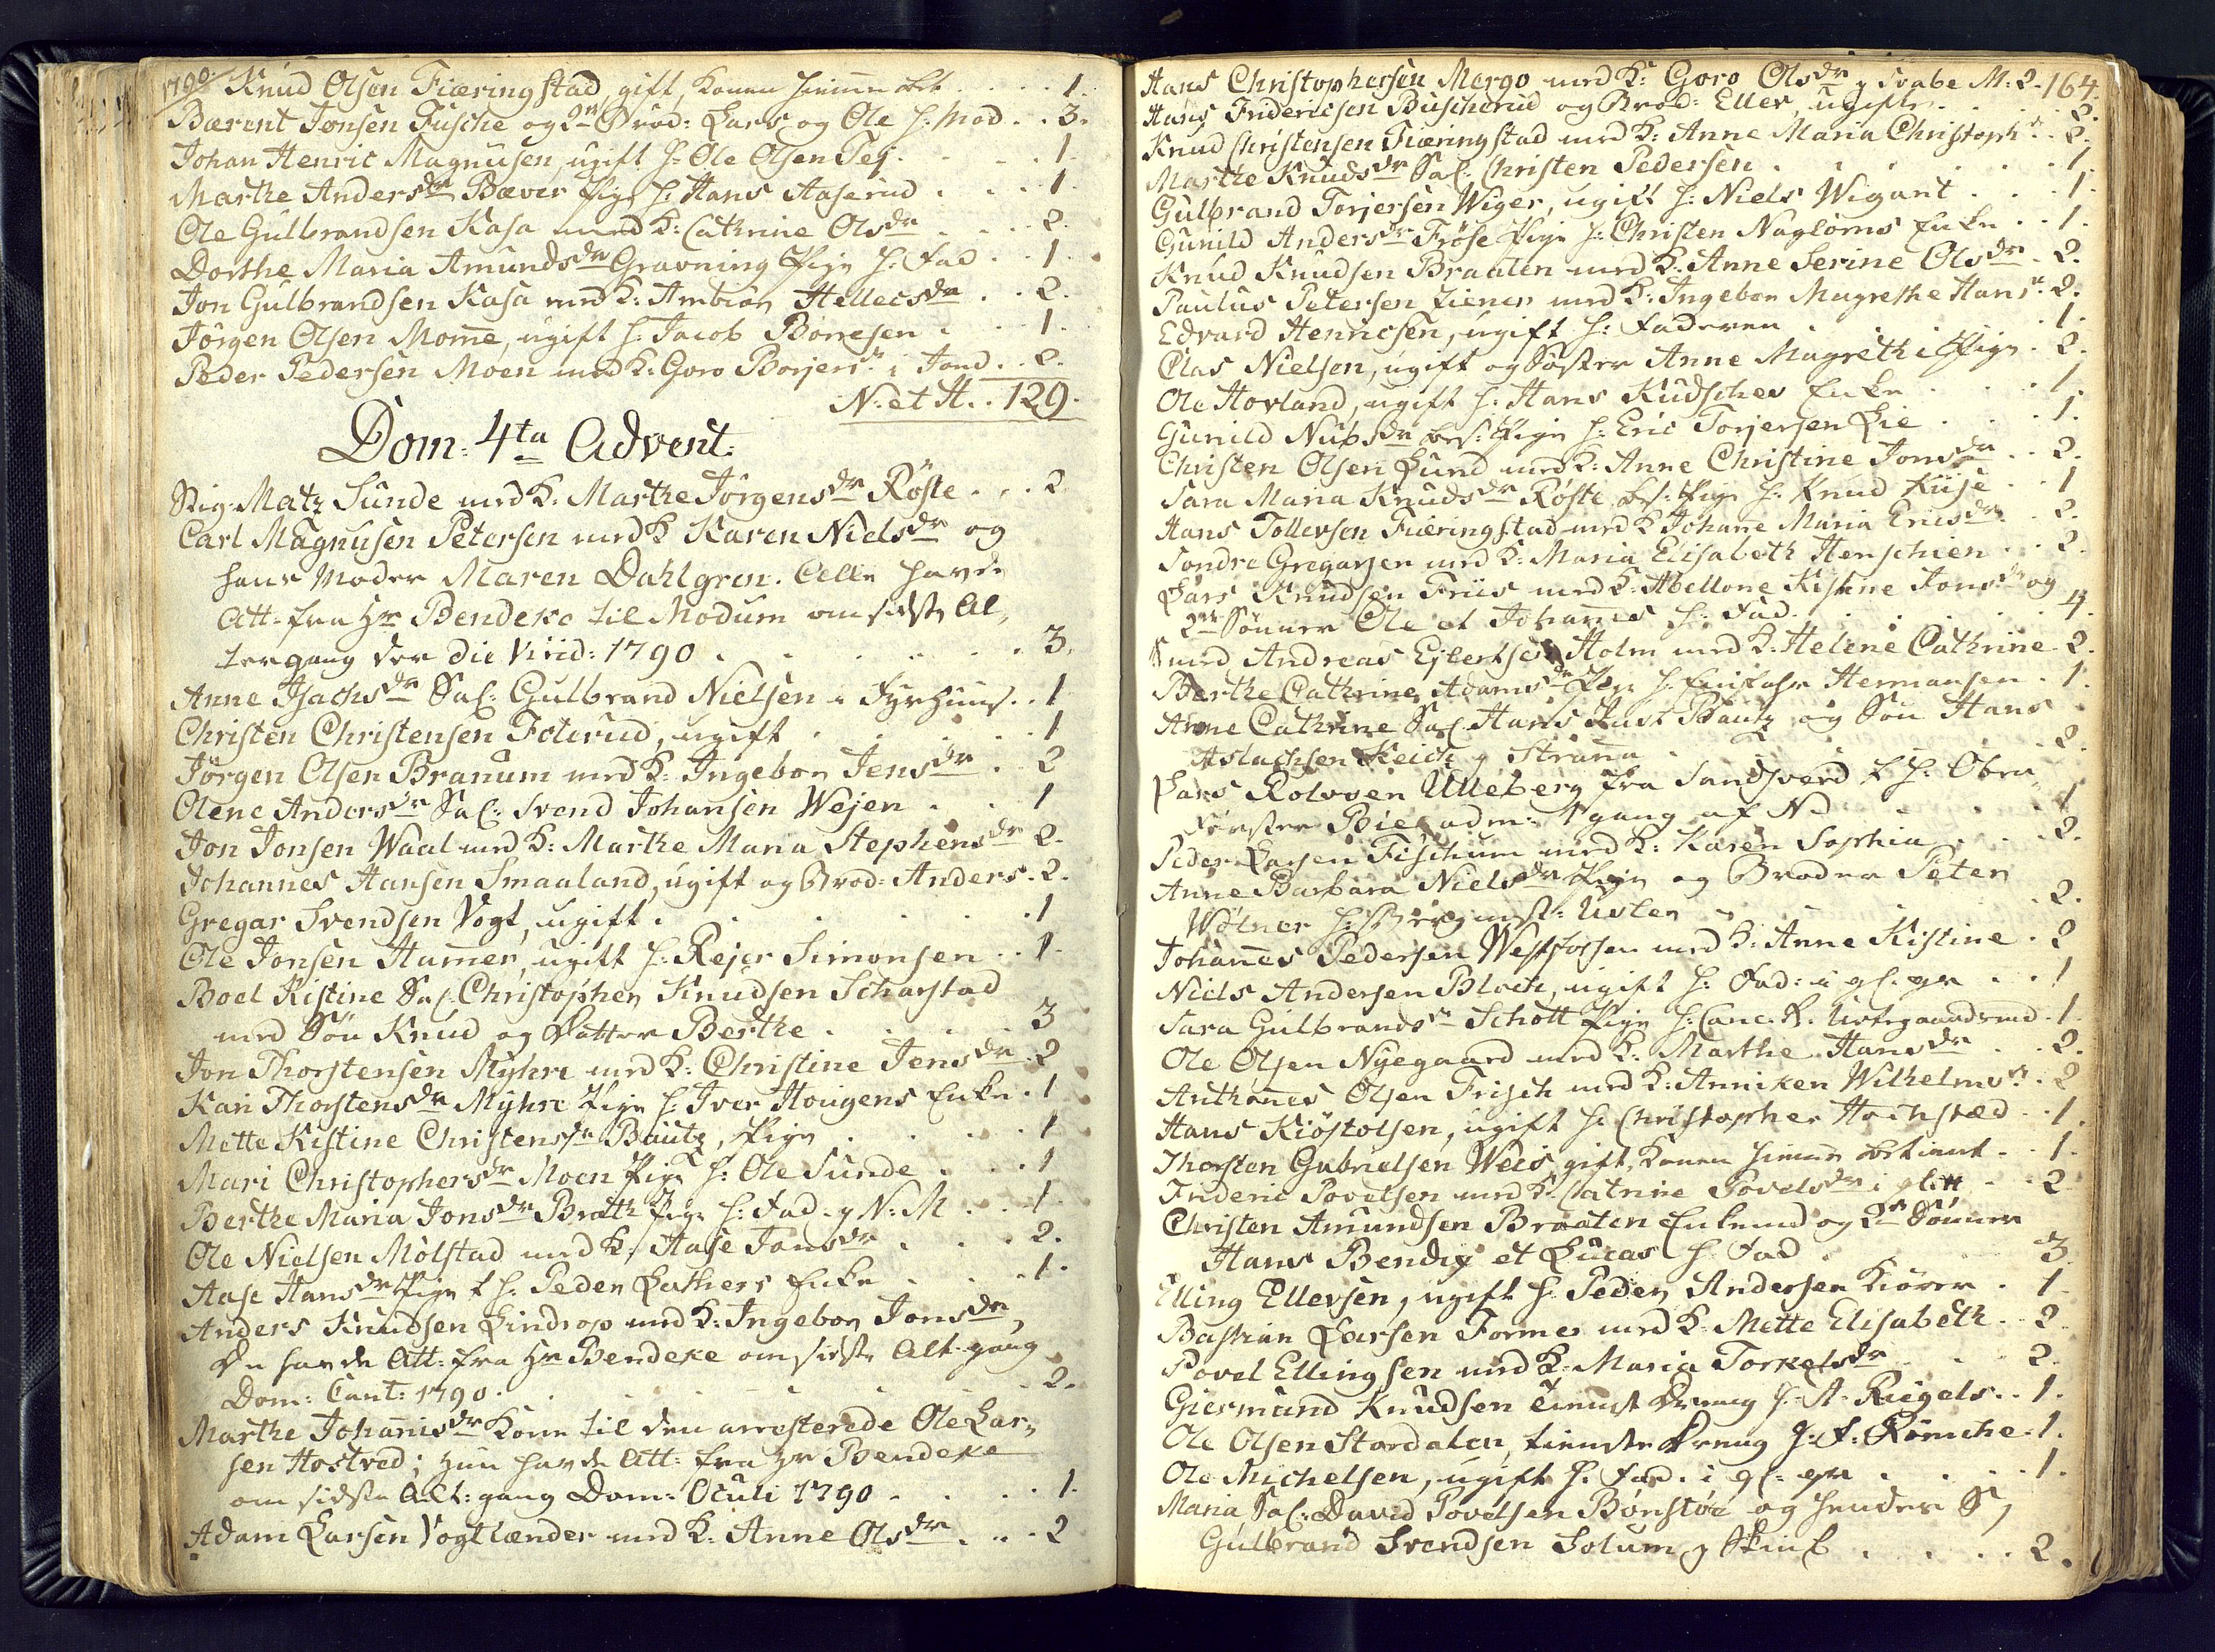 1790. Knud Olsen Fiæringstad, gift, Konen hiemme bet. . . . 1.
Bærent Jonsen Fusche og 2de Brød: Lars og Ole h: Mod . . 3.
Johan Henric Magnusen, ugift h: Ole Olsen Tej . . . . 1.
Marthe Andersdr Bæver Pige h: Hans Aaserud . . . 1.
Ole Gulbrandsen Kasa med K: Cathrine Olsdr . . . 2.
Dorthe Maria Amundsdr Gravning Pige h: Fad . . 1.
Jon Gulbrandsen Kasa med K: Ambiør Hellecsdr . . 2.
Jørgen Olsen Mome, ugift h: Jacob Børresen . . . 1.
Peder Pedersen Moen med K: Goro Borjersdr i Jond . . 2.
N: et H. . 129.
Dom: 4ta Advent:
Stig: Matz Sunde med K: Marthe Jørgensdr Røste . . . 2
Carl Magnusen Petersen med K Karen Nielsdr og
hans Moder Maren Dahlgren. Alle havde
Att: fra Hr Bendeke til Modum om sidste Al-
tergang der die Viiid: 1790 . . . . . 3.
Anne Isachsdr Sal: Gulbrand Nielsen i Fyrhuus . . 1
Christen Christensen Foterud, ugift . . . . 1
Jørgen Olsen Branum med K: Ingebor Jensdr . 2
Olene Andersdr Sal: Svend Johansen Wejen . . 1
Jon Jonsen Waal med K: Marthe Maria Stephensdr 2.
Johannes Hansen Smaaland, ugift og Brod: Anders . 2.
Gregar Svendsen Vogt, ugift . . . . . 1
Ole Jonsen Hamer, ugift h: Rejer Simonsen . . 1.
Boel Kistine Sal: Christopher Knudsen Scharstad
med Søn Knud og Datter Berthe . . . . 3
Jon Thorstensen Myhre med K: Christine Jensdr . 2
Kari Thorstensdr Myhre Pige h: Iver Hougens Enke . 1
Mette Kistine Christensdr Bautz, Pige . . . . 1
Mari Christophersdr Moen Pige h: Ole Sunde . . . 1
Berthe Maria Jonsdr Bratt Pige h: Fad. y N: M . . 1.
Ole Nielsen Mølstad med K: Aase Jansdr . . . 2.
Aase Hansdr Pige t h: Peder Lathers Enke . . . 1.
Anders Knudsen Lindrop med K: Ingebor Jonsdr,
De havde Att: fra Hr Bendeke om sidste Alt: gang
Dom: Cant: 1790 . . . . . . . 2.
Marthe Johannisdr Kone til den arresterede Ole Lar-
sen Hostved; hun havde Att: fra Hr Bendeke
om sidste Alt: gang Dom: Oculi 1790 . . . . 1.
Adam Larsen Vogtlænder med K: Anne Olsdr . . . 2
164.
Hans Christophersen Mergo med K: Goro Olsdr y Svabe M: 2.
Hans Fridericsen Buscherud og Brod: Eller, ugifte . . . 2.
Knud Christensen Fiæringstad med K: Anne Maria Christophdr . 2.
Marthe Knudsdr Sal: Christen Pedersen . . . . . 1
Gulbrand Torjersen Wiger, ugift h: Niels Wigant . . . 1.
Gunild Andersdr Frøse Pige h: Christen Nagløens Enke . . 1.
Knud Knudsen Braaten med K: Anne Serine Olsdr . 2.
Paulus Petersen tiener med K: Ingebor Magrethe Hansdr 2.
Edvard Henricsen, ugift h: Faderen . . . . 1.
Clas Nielsen, ugift og Søster Anne Magrethe Pige . 2.
Ole Hovland, ugift h: Hans Kudsches Enke . . . 1.
Gunild Nubsdr bes: Pige h: Eric Torjersen Lie . . . 1.
Christen Olsen Lund med K: Anne Christine Jonsdr . . 2.
Sara Maria Knudsdr Røste bes: Pige h: Knud Kiise . . 1
Hans Tollevsen Fiæringstad med K Johane Maria Ericsdr . 2.
Søndre Gregarsen med K: Maria Elisabeth Henschien . . 2.
Lars Knudsen Friis med K: Abellone Kistine Jonsdr og
2de Sønner Ole et Johanes h: Fad . . . . . 4.
Smed Andreas Ejlertsen Holm med K: Helene Cathrine . 2.
Berthe Cathrine Adamsdr Pige h: Hermansen . 1.
Anne Cathrine Sal: Hans Just Bautz og Søn Hans
Aslachsen Keich y Strøma . . . . . 2.
Lars Rolvsen Ulleberg fra Sandsverd t h: Ober
Førster Bie, adm: 1 gang af N . . . . 1
Peder Larsen Fischum med K: Karen Sophia . . . 2.
Anne Barbara Nielsdr Pige og Broder Peter
Wølner h: Bergmst: Uslar . . . . 2.
Johannes Pedersen Westfossen med K: Anne Kistine . 2
Niels Andersen Bloch, ugift h: Fad: i gl: gr . . 1
Sara Gulbrandsdr Schott Pige h: Canc. R. . 1.
Ole Olsen Nyegaard med K: Marthe Hansdr . . 2.
Anthones Olsen Frisch med K: Anniken Wilhelmsdr . 2
Hans Kiøstolsen, ugift h: Christopher Hochstæd . . 1.
Thorsten Gabrielsen Weis, gift, Konen hieme betient . . 1.
Frideric Povelsen med K: Catrine Povelsdr i glitt . . 2
Christen Amundsen Braaten Enkemd og 2de Sønner
Hans Bendix et Lucas h: Fad . . . . 3.
Elling Ellevsen, ugift h: Peder Andersen Kiører . 1.
Bastian Larsen Former med K: Mette Elisabeth . . 2.
Povel Ellingsen med K: Maria Torkelsdr . . . 2.
Giermund Knudsen tienest Dreng h: A: Riegels . . 1.
Ole Olsen Stordalen, tieneste Dreng h: F: Römche . 1.
Ole Michelsen, ugift h: Fad. i gl: gr . . . . 1.
Maria Sal: David Povelsen Bønstøe og hendes S,
Gulbrand Svendsen Solum y . . . . 2.